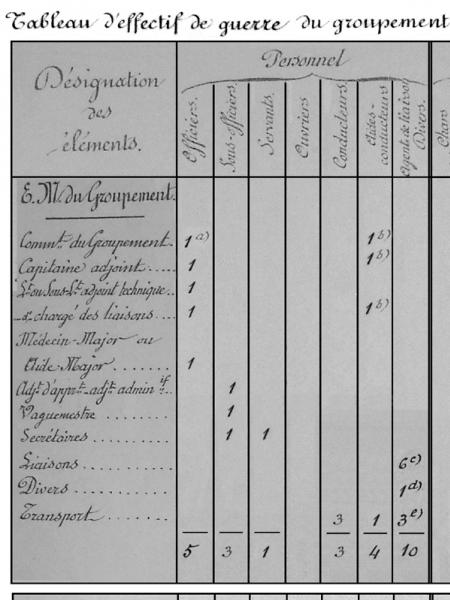 Tableau d'effectif de guerre du groupement
Désignation des éléments.
Personnel
Officiers.
Sous-officiers.
Servants.
Ouvriers
Conducteurs.
Aides-conducteurs
Agents de liaison Divers.
Chars
E.M. du Groupement.
Commt. du Groupement. 1 a) 1 b)
Capitaine adjoint..... 1 1 b)
Lt. ou Sous-Lt. adjoint technique... 1
-d- chargé des liaisons.... 1 1 b)
Médecin-Major ou
Aide Major........ 1
Adjt. d'appt.- adjt. admin if.. 1
Vaguemestre ........ 1
Secrétaires .......... 1 1
Liaisons............ 6 c)
Divers ............ 1 d)
Transport........ 3 1 3 e)
5 3 1 3 4 10